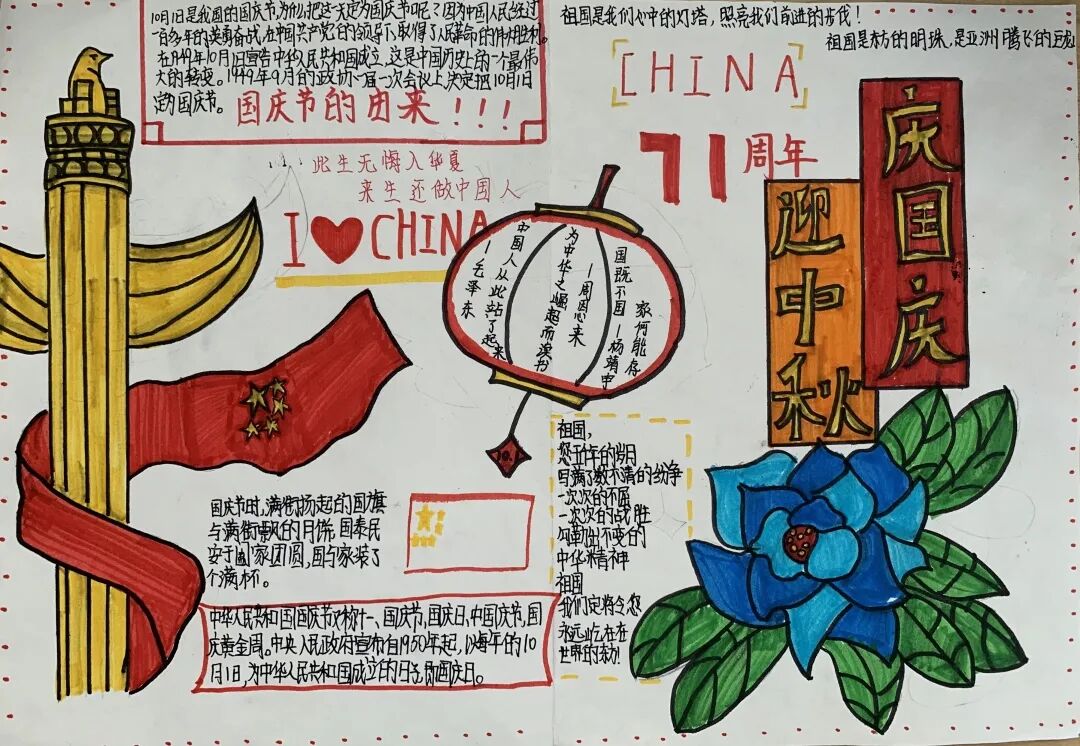 10月1日是我国的国庆节,为什么把这一天定为国庆节呢?因为中国人民经过
一百多年的英勇奋战,在中国共产党的领导下,取得了人民革命的伟大胜利。
在1949年10月1日宣告中华人民共和国成立,这是中国历史上的一个最伟
大的转变。1949年9月的政协一届一次会议上决定把10月1日
定为国庆节。
国庆节的由来!!!
祖国是我们心中的灯塔,照亮我们前进的步伐!
祖国是东方的明珠,是亚洲腾飞的巨龙
CHINA
71周年
此生无悔入华夏
来生还做中国人
I CHINA
中国人从此站了起来
—毛泽东
为中华之崛起而读书
—周恩来
国既不国
家何能存
—杨靖宇
庆国庆
迎中秋
国庆节时,满街扬起的国旗
与满街飘的月饼.国泰民
安于国家团圆,国与家装了
个满杯。
中华人民共和国国庆节又称十一、国庆节,国庆日,中国国庆节,国
庆黄金周。中央人民政府宣布自1950年起,以每年的10
月1日,为中华人民共和国成立的日子,即国庆日。
祖国,
您五千年的岁月
写满了数不清的纷争
一次次的不屈
一次次的战胜
勾勒出不变的
中华精神
祖国
我们定将令您
永远屹在在
世界的东方!